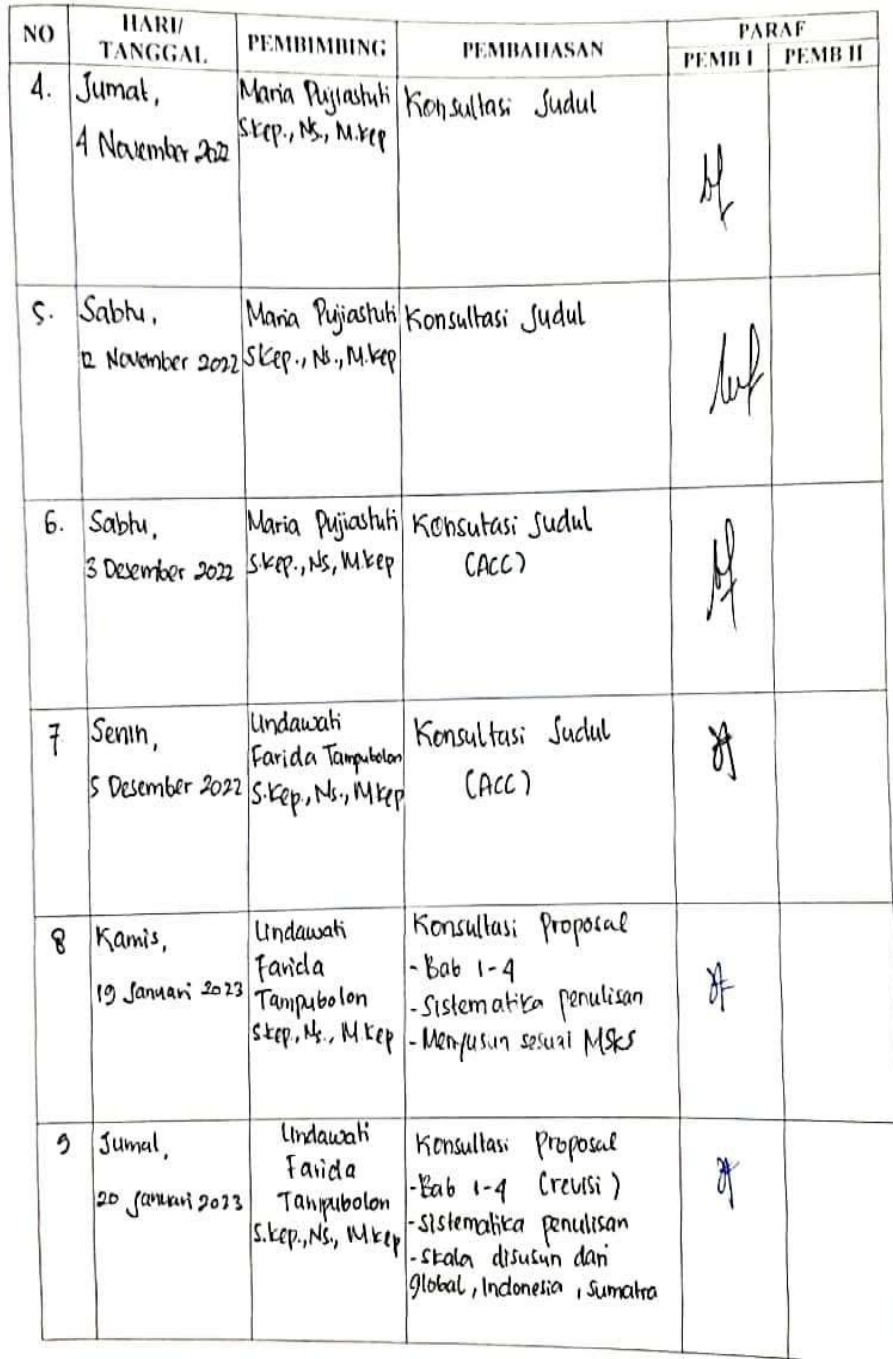 NO
HARI/
TANGGAL
PEMBIMBING
PEMBAHASAN
PARAF
PEMB I
PEMB II
4.
Jumat,
4 November 2022
Maria Pujiastuti
S.kep., Ns., M.kep
Konsultasi Judul
5.
Sabtu,
12 November 2022
Maria Pujiastuti
S.Kep., Ns., M.kep
Konsultasi Judul
6.
Sabtu,
3 Desember 2022
Maria Pujiastuti
S.kep., Ns, M.kep
Konsutasi Judul
(ACC)
7
Senin,
5 Desember 2022
Lindawati
Farida Tampubolon
S.Kep., Ns., M.kep
Konsultasi Judul
(ACC)
8
Kamis,
19 Januari 2023
Lindawati
Farida
Tampubolon
S.kep., Ns., M.kep
Konsultasi Proposal
- Bab 1-4
- Sistematika penulisan
- Menyusun sesuai MSKS
9
Jumat,
20 Januari 2023
Lindawati
Farida
Tampubolon
S.kep., Ns., M.kep
Konsultasi Proposal
- Bab 1-4 (revisi)
- Sistematika penulisan
- Skala disusun dari
global, Indonesia, Sumatra